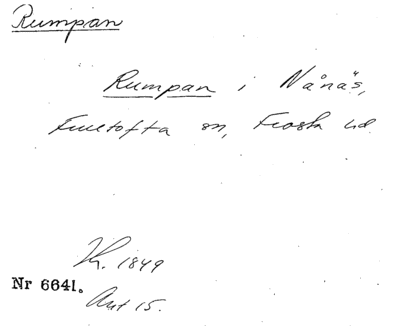 Rumpan
Rumpan i Nånäs,
Fultofta sn, Frosta hd.
Kr. 1849
Nr 6641.
Avt 15.